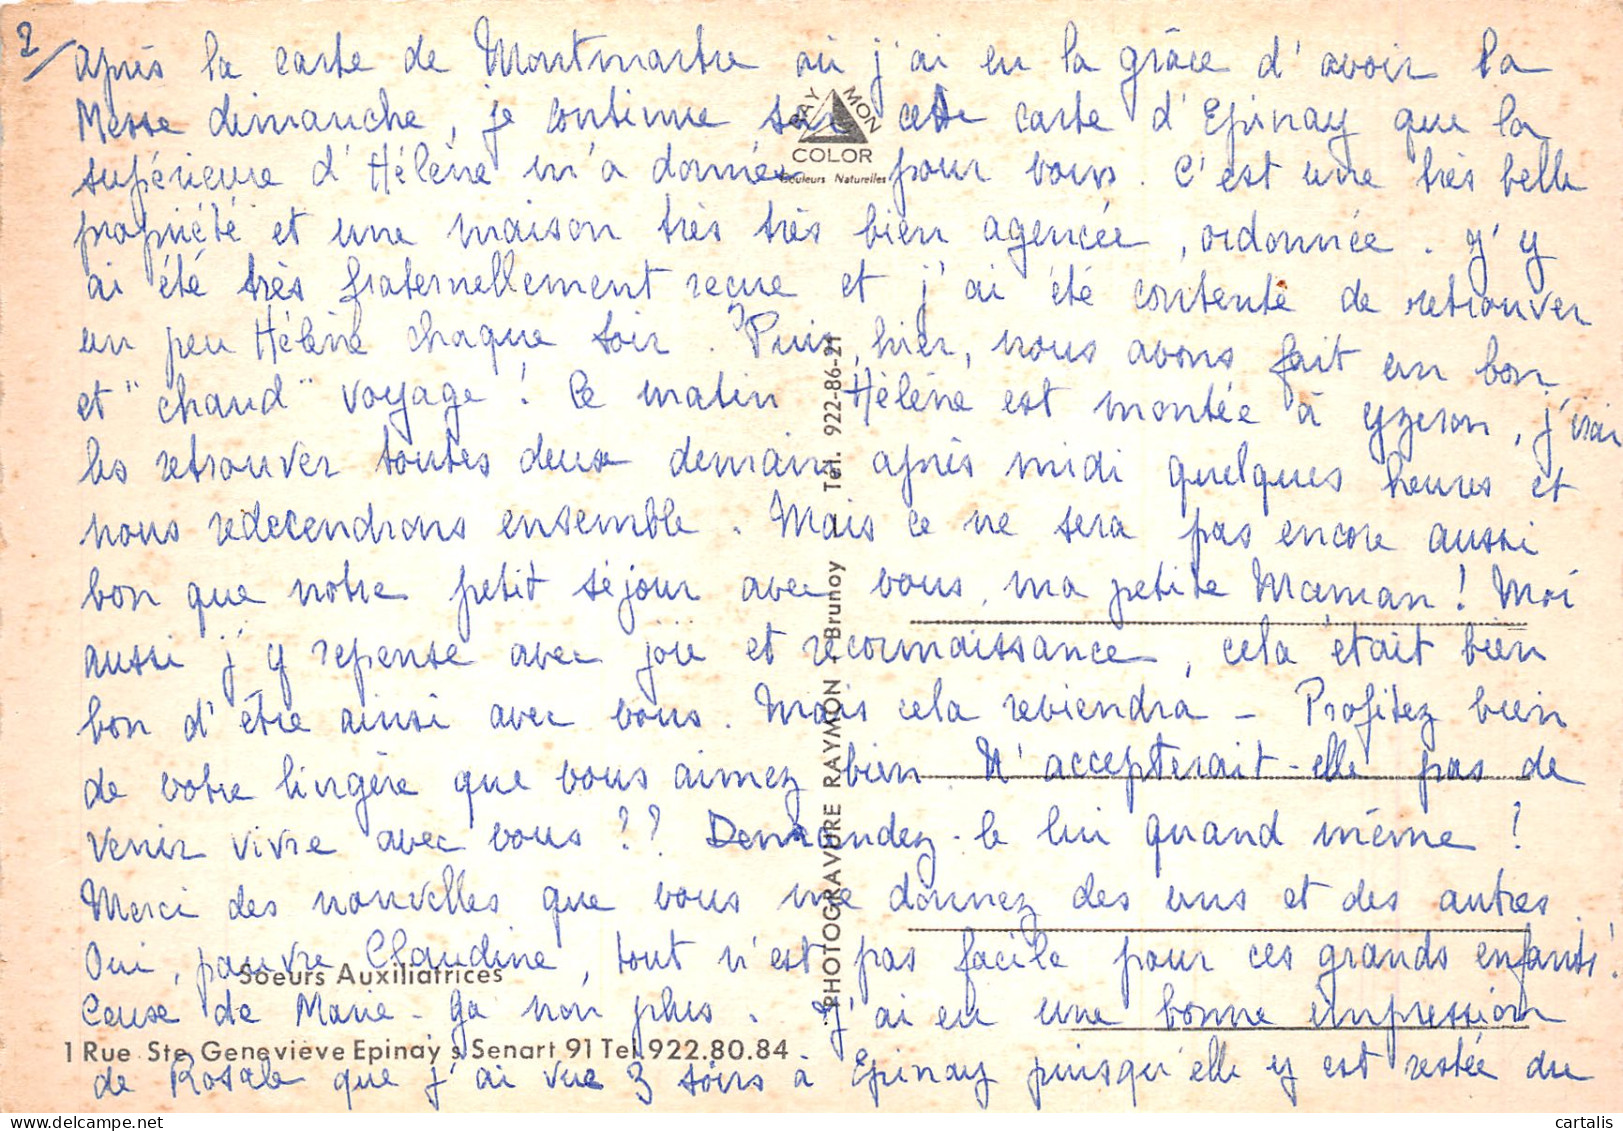 2/
Après la carte de Montmartre où j'ai eu la grâce d'avoir la
Messe dimanche, je continue sur cette carte d'Epinay que la
supérieure d'Hélène m'a donnée pour vous. C'est une très belle
propriété et une maison très très bien agencée, ordonnée. J'y
ai été très fraternellement reçue et j'ai été contente de retrouver
un peu Hélène chaque soir. Puis, hier, nous avons fait un bon
et "chaud" voyage! Ce matin Hélène est montée à Yzeron, j'irai
les retrouver toutes deux demain après midi quelques heures et
nous redecendrons ensemble. Mais ce ne sera pas encore aussi
bon que notre petit séjour avec vous, ma petite Maman! Moi
aussi j'y repense avec joie et reconnaissance, cela était bien
bon d'être ainsi avec vous. Mais cela reviendra - Profitez bien
de votre lingère que vous aimez bien. N'accepterait-elle pas de
venir vivre avec vous?? Demandez-le lui quand même!
Merci des nouvelles que vous me donnez des uns et des autres.
Oui, pauvre Claudine, tout n'est pas facile pour ces grands enfants!
Ceux de Marie - Ga non plus. J'ai eu une bonne impression
de Rosale que j'ai vue 3 soirs à Epinay puisqu'elle y est restée du
RAYMON
COLOR
Couleurs Naturelles
PHOTOGRAVURE RAYMON - Brunoy - Tél. 922-86-21
Soeurs Auxiliatrices
1 Rue Ste Geneviève Epinay s Senart 91 Tel 922.80.84
cartalis
www.delcampe.net